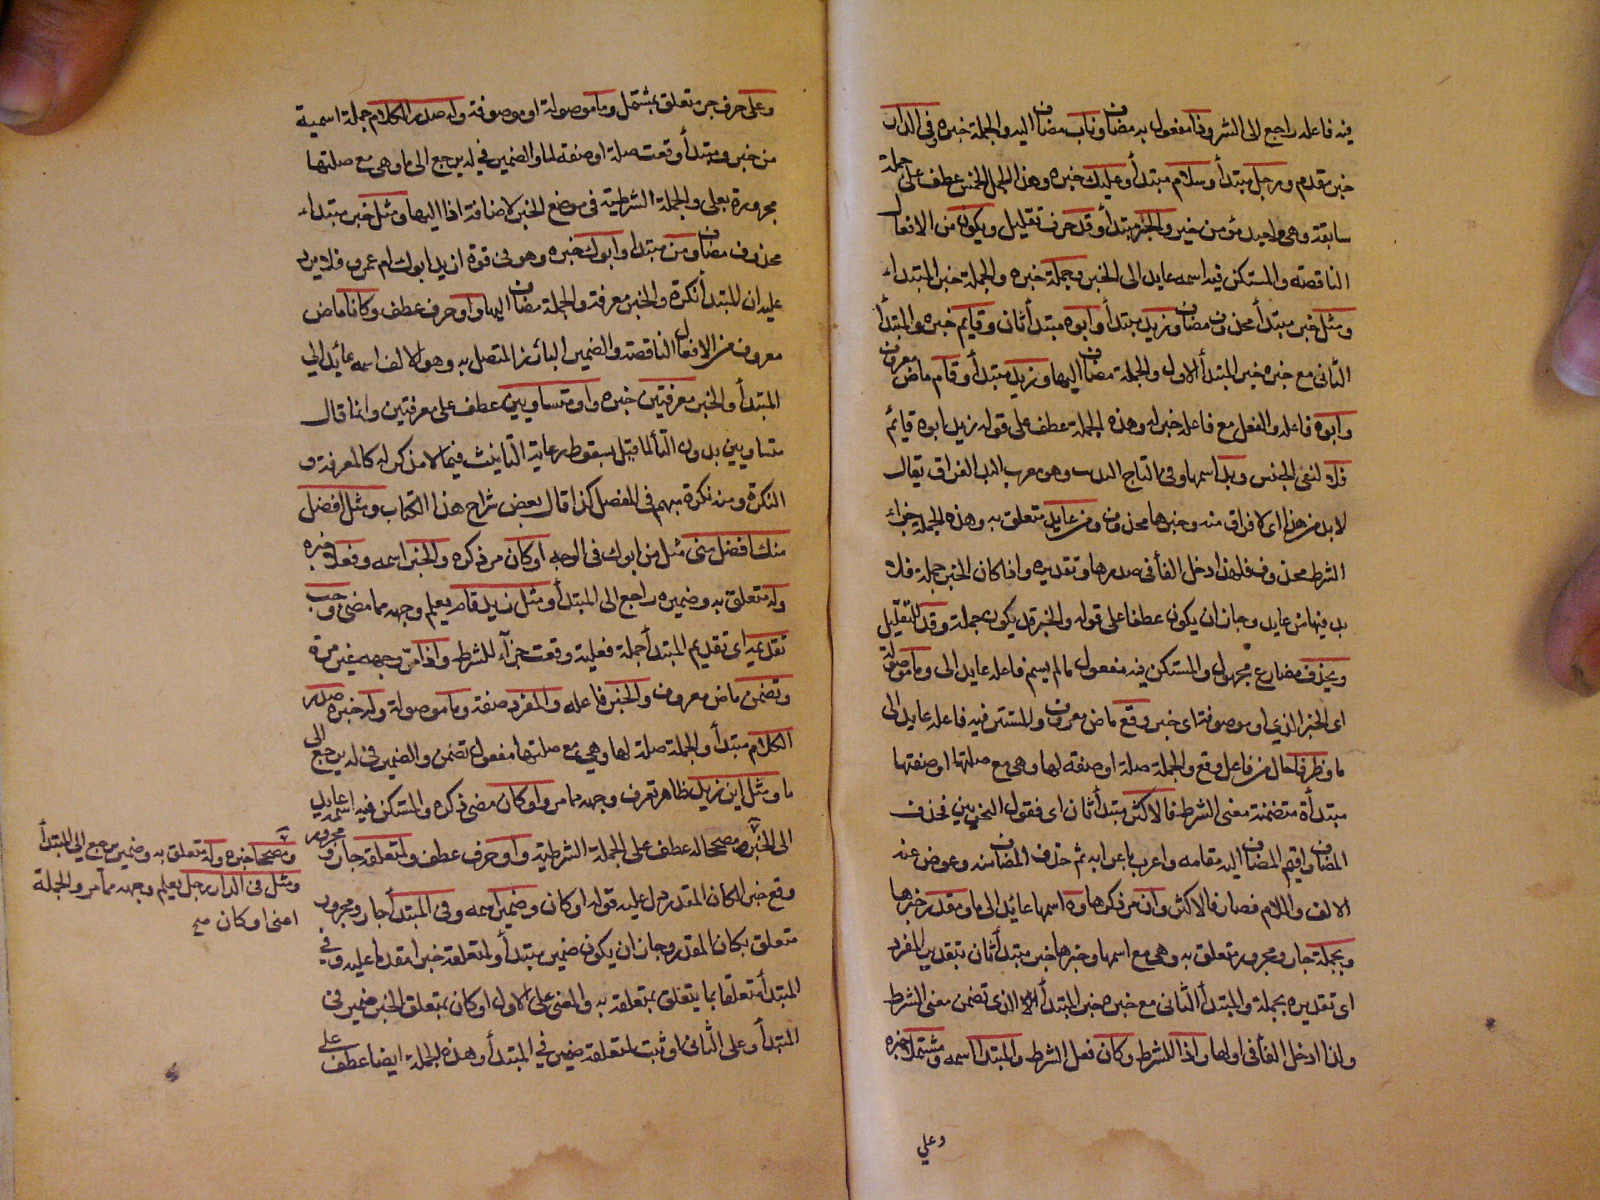 فيه فاعله راجع الى الشر وذا مفعول به مضاف وناب مضاف اليه والجملة خبره وفى الدار
خبر مقدم ورجل مبتدأ وسلام مبتدأ وعليك خبره وهذا الجمل الخمس عطف على جملة
سابقة وهى ولعبد مؤمن خير والخبر مبتدأ وقد حرف تقليل ويكون من الافعال
الناقصة والمستكن فيه اسمه عايد الى الخبر وجملة خبره والجملة خبر المبتداء
ومثل خبر مبتدأ محذوف مضاف وزيد مبتدأ وابوه مبتدأ ثان وقايم خبره والمبتدأ
الثانى مع خبره خبر المبتدأ الاول والجملة مضاف اليها وزيد مبتدأ وقام ماض معروف
وابوه فاعله والفعل مع فاعله خبر له وهذه الجملة عطف على قوله زيد ابوه قايم
فلا لنفى الجنس وبد اسمها وفى التاج البد وهو معرب الفراق يقال
لا بد من هذا اى لا فراق منه وخبرها محذوف ومن عايد متعلق به وهذه الجملة جزاء
الشرط محذوف فلهذا ادخل الفأ فى صدرها وتقديره واذا كان الخبر جملة فلا
بد فيها من عايد وجاز ان يكون عطفا على قوله والخبر قد يكون جملة وقد للتقليل
ويحذف مضارع مجهول والمستكن فيه مفعول ما لم يسم فاعله عايد الى وما موصولة
اى الخبر الذى او موصوفة اى خبر وقع ماض معروف والمستتر فيه فاعله عايد الى
ما وظرفا حال من فاعل وقع والجملة صلة او صفة لها وهى مع صلتها او صفتها
مبتدأة متضمنة معنى الشرط فالاكثر مبتدأ ثان اى فقول النحويين فحذف
المضاف واقيم المضاف اليه مقامه واعرب باعرابه ثم حذف المضاف منه وعوض عنه
الالف واللام فصار فالاكثر وان مر ذكرها وه اسمها عايد الى ما ومقدر خبرها
وبجملة جار ومجرور متعلق به وهى مع اسمها وخبرها خبر مبتدأ ثان بتقدير المفرد
اى تقديره بجملة والمبتدأ الثانى مع خبره خبر المبتدأ الاول الذى تضمن معنى الشرط
ولذا ادخل الفأ فى اولها واذا للشرط وكان فعل الشرط والمبتدا اسمه ومشتملا خبره
وعلى
وعلى حرف جر متعلق بمشتمل وما موصولة او موصوفة وله صدر الكلام جملة اسمية
من خبر ومبتدأ وقعت صلة او صفة لما والضمير فى له يرجع الى ما وهى مع صلتها
مجرورة بعلى والجملة الشرطية فى موضع الخبر لاضافة اذا اليها ومثل خبر مبتداء
محذوف مضاف ومن مبتدا وابوك خبره وهو فى قوة ازيد ابوك ام عمرو فلا يرد
عليه ان المبتدأ نكرة والخبر معرفة والجملة مضاف اليها واو حرف عطف وكانا ماض
معروف من الافعال الناقصة والضمير البارز المتصل به وهو الالف اسمه عائد الى
المبتدأ والخبر معرفتين خبره واو متساويين عطف على معرفتين وانما قال
متساويين بدون التأ لما قبل بسقوط رعاية التأنيث فيما لا مذكر له كالمعرفة و
النكرة ومنه نكرة مبهم فى المفصل كذا قال بعض شراح هذا الكتاب ومثل افضل
منك افضل منى مثل من ابوك فى الوجه او كان مر ذكره والخبر اسمه وفعلا خبره
وله متعلق به وضميره راجع الى المبتدأ ومثل زيد قام يعلم وجهه مما مضى وجب
تقديمه اى تقديم المبتدأ جملة فعلية وقعت جزآء للشرط واذا مر وجهه غير مرة
وتضمن ماض معروف والخبر فاعله والمفرد صفة وما موصولة وله خبره صدر
الكلام مبتدأ والجملة صلة لها وهى مع صلتها مفعول تضمن والضمير فى له يرجع الى
ما ومثل اين زيد ظاهر تعرف وجهه مما مر واو كان مضى ذكره والمستكن فيه اسمه عايد
الى الخبر ومصححا له عطف على الجملة الشرطية واو حرف عطف ولمتعلقه جار ومجرور
وقع خبر لكان المقدر دل عليه قوله او كان وضمير اسمه وفى المبتدأ جار ومجرور
متعلق بكان المقدر وجاز ان يكون ضمير مبتدأ ولمتعلقه خبرا مقدما عليه وفى
المبتدأ متعلقا بما يتعلق بمتعلقه به والمعنى على الاول او كان بمتعلق الخبر ضمير فى
المبتدأ وعلى الثانى او ثبت لمتعلقه ضمير فى المبتدأ وهذه الجملة ايضا عطف على
ومصححا خبره وله متعلق به وضميره يرجع الى المبتدأ
ومثل فى الدار رجل يعلم وجهه مما مر والجملة
اعنى او كان صح